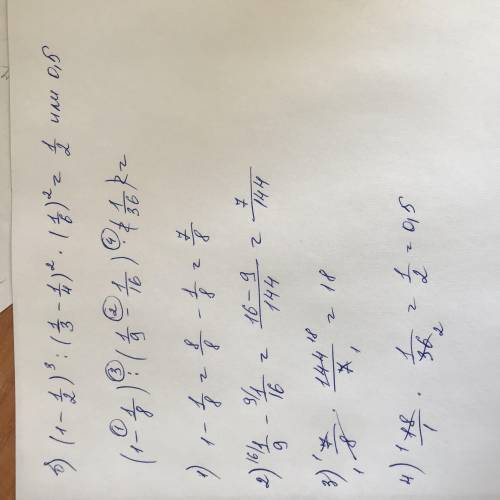 б) (1 - 1/2)³ : (1/3 - 1/4)² · (1/6)² = 1/2 или 0,5
(1 ① - 1/8) ③ : (1/9 ② - 1/16) ④ · (1/36) =
1) 1 - 1/8 = 8/8 - 1/8 = 7/8
2) ¹⁶⁾1/9 - ⁹⁾1/16 = (16 - 9)/144 = 7/144
3) 7/8 · 144/7 = 18
4) 18/1 · 1/36 = 1/2 = 0,5